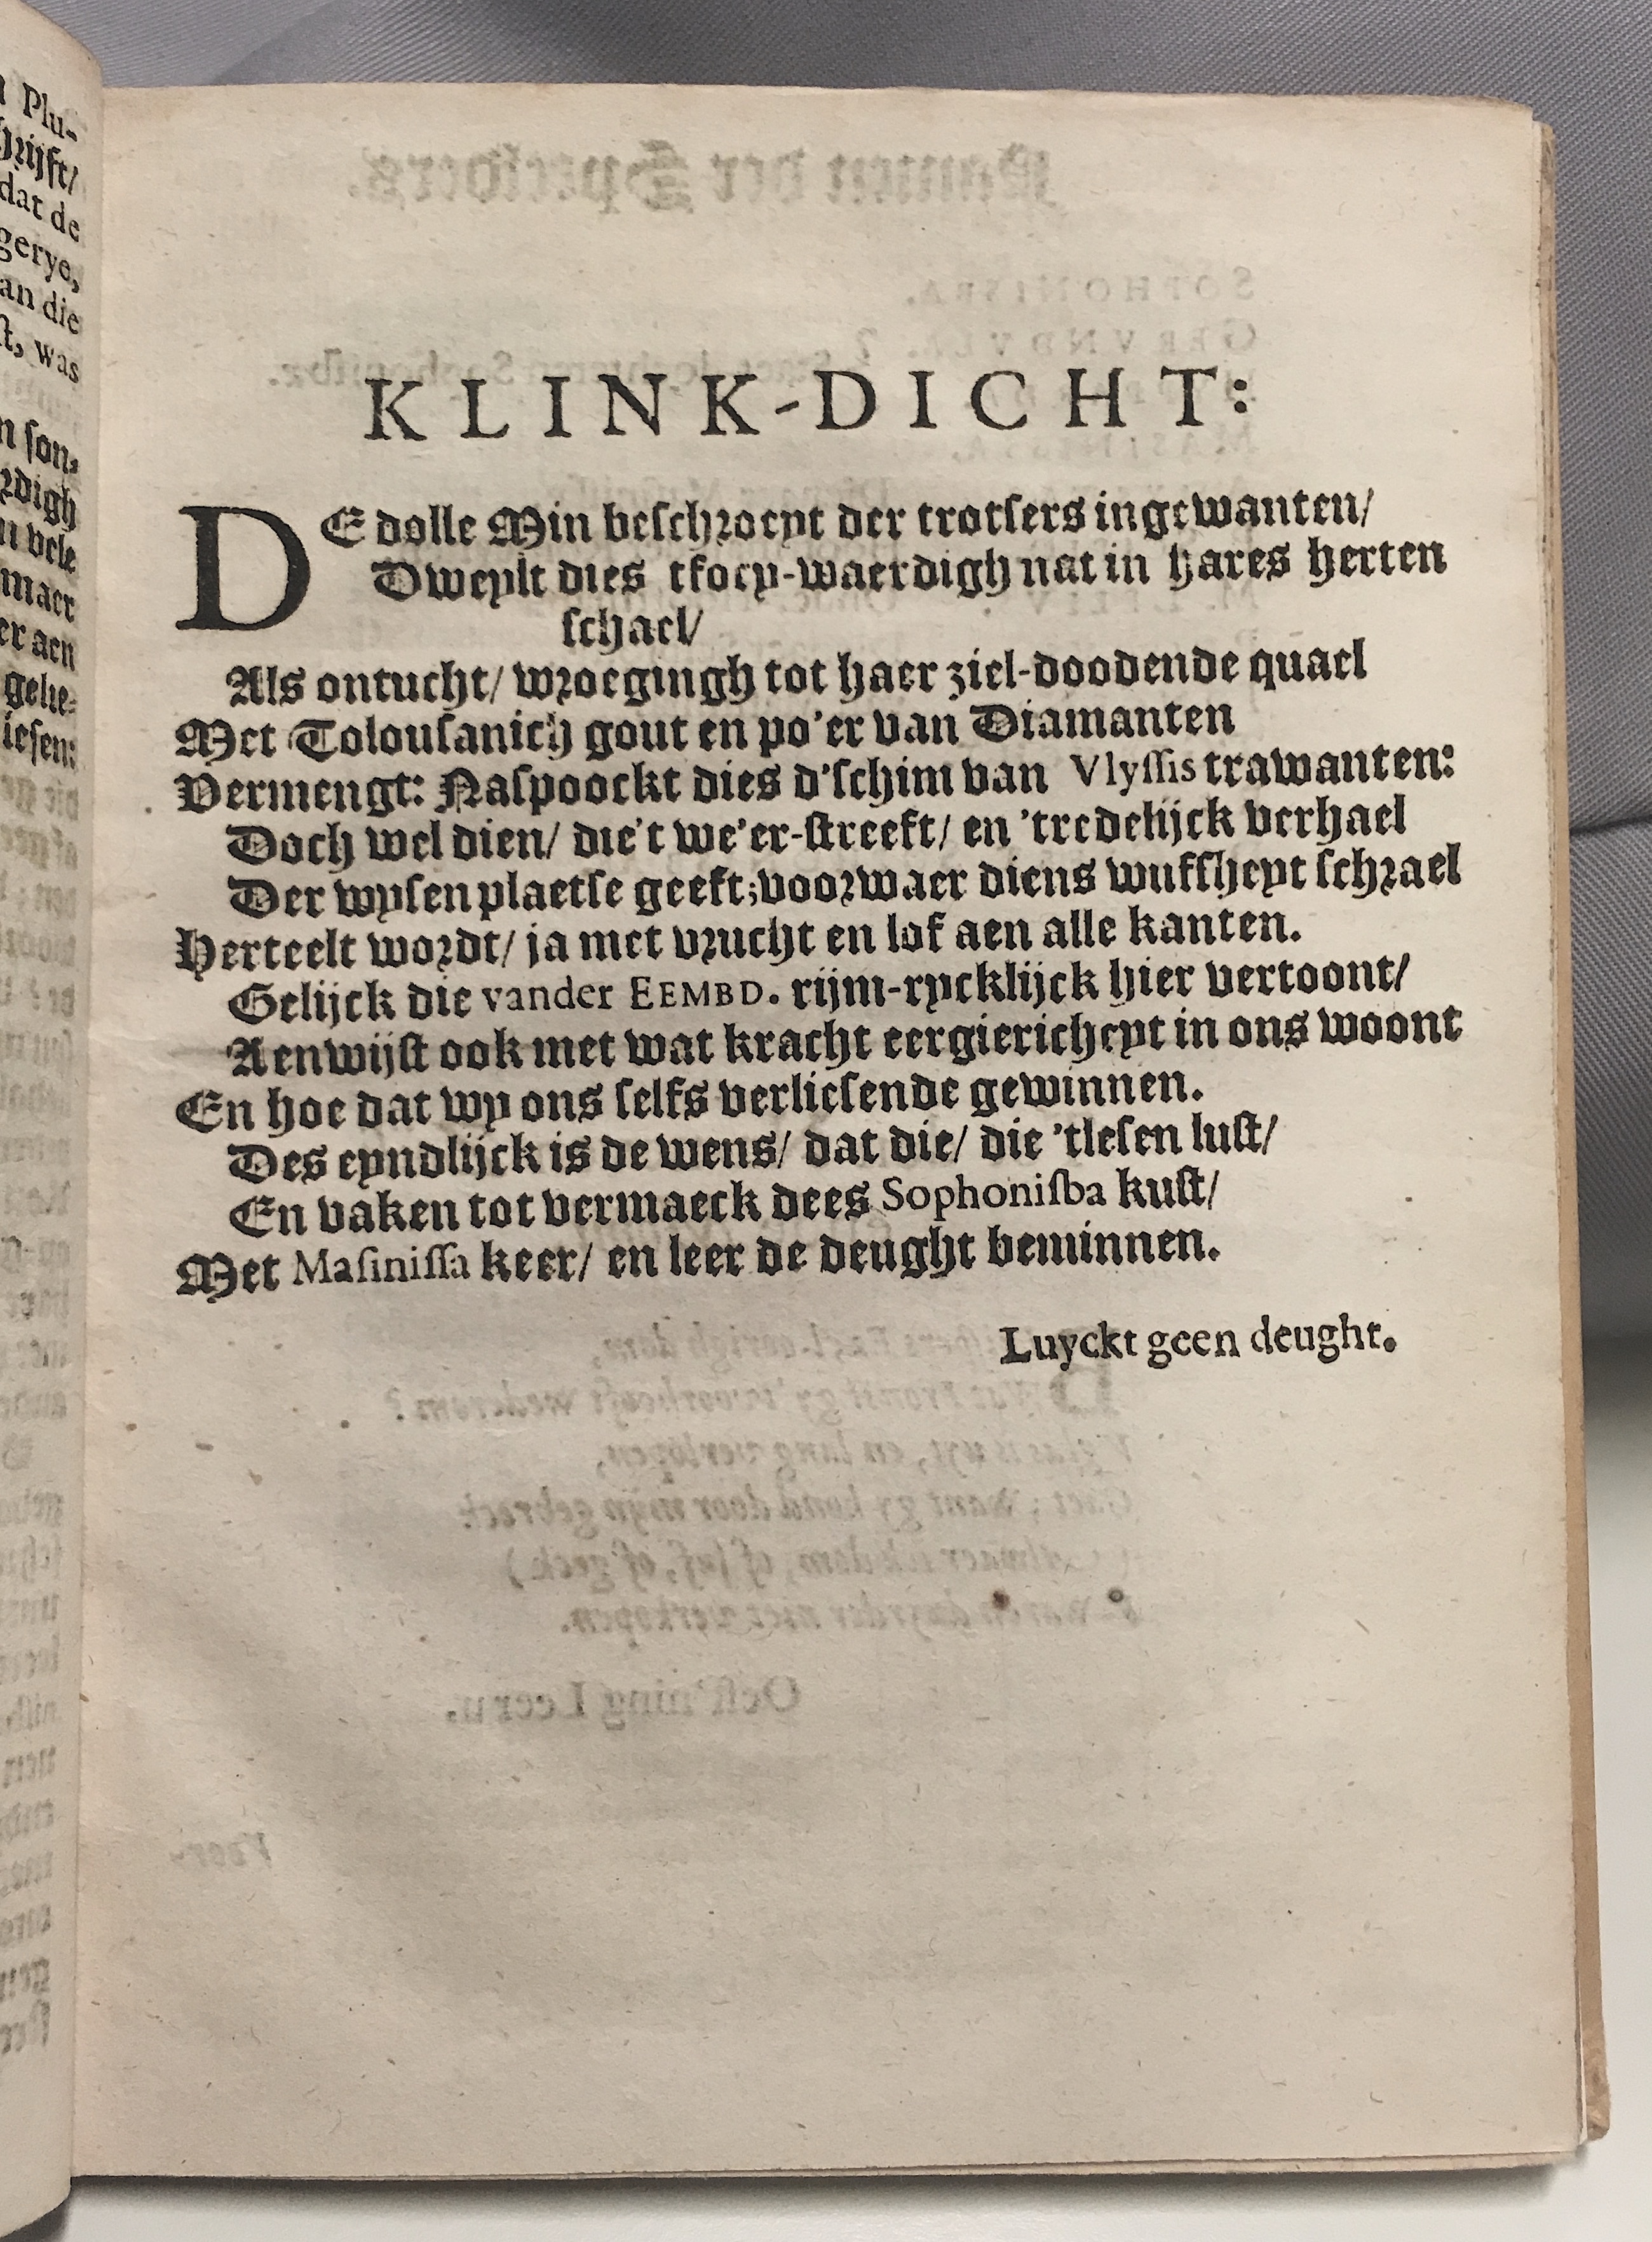 KLINK-DICHT:
DE dolle Min beschroeyt der trotsers ingewanten/
Dweylt dies tkoey-waerdigh nat in hares herten
schael/
Als ontucht/ wroegingh tot haer ziel-doodende quael
Met Tolousanich gout en po'er van Diamanten
Vermengt: Naspoockt dies d'schim van Vlyssis trawanten:
Doch wel dien/ die't we'er-streeft/ en 'tredelijck verhael
Der wysen plaetse geeft; voorwaer diens wufsheyt schrael
Herteelt wordt/ ja met vrucht en lof aen alle kanten.
Gelijck die vander EEMBD. rijm-rycklijck hier vertoont/
Aenwijst ook met wat kracht eergiericheyt in ons woont
En hoe dat wy ons selfs verliesende gewinnen.
Des eyndlijck is de wens/ dat die/ die 'tlesen lust/
En vaken tot vermaeck dees Sophonisba kust/
Met Masinissa keer/ en leer de deught beminnen.
Luyckt geen deught.